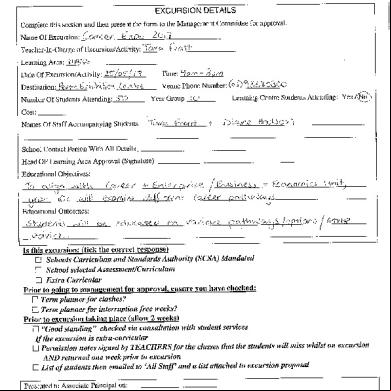 EXCURSION DETAILS
Complete this section and then present the form to the Management Committee for approval.
Name Of Excursion: Career Expo 2017
Teacher-In-Charge of Excursion/Activity: Tara
Learning Area:
Date Of Excursion/Activity: Time: 9am - 2pm
Destination: Perth Exhibition Centre Venue Phone Number:
Number Of Students Attending: 50 Year Group 10 Learning Centre Students Attending: Yes/No
Cost:
Names Of Staff Accompanying Students: Tara + Diane
School Contact Person With All Details:
Head OF Learning Area Approval (Signature)
Educational Objectives:
To align with Career + Enterprise / Business + Economics Unit,
year 10 will examine different career pathways
Educational Outcomes:
Students will be educated on various pathways/options/
advice.
Is this excursion: (tick the correct response)
Schools Curriculum and Standards Authority (NCSA) Mandated
School selected Assessment/Curriculum
Extra Curricular
Prior to going to management for approval, ensure you have checked:
Term planner for clashes?
Term planner for interruption free weeks?
Prior to excursion taking place (allow 2 weeks)
"Good standing" checked via consultation with student services
If the excursion is extra-curricular
Permission notes signed by TEACHERS for the classes that the students will miss whilst on excursion
AND returned one week prior to excursion
List of students then emailed to 'All Staff' and a list attached to excursion proposal
Presented to Associate Principal on: